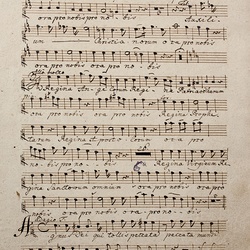 ora pro nobis pro no - bis Auxili-
um Christia norum ora pro nobis
ora pro nobis ora pro no - bis
Regina An - ge lorum Regi - na Patriarcharum
ora pro nobis ora pro nobis Regina Prophe-
tarum Regina A posto - lorum ora pro
no - bis pro no - bis Regina Virginum Re-
gina Sanctorum omnium ora pro nobis ora pro
nobis ora pro nobis ora pro no - bis
Agnus Dei qui tollis peccata peccata mundi